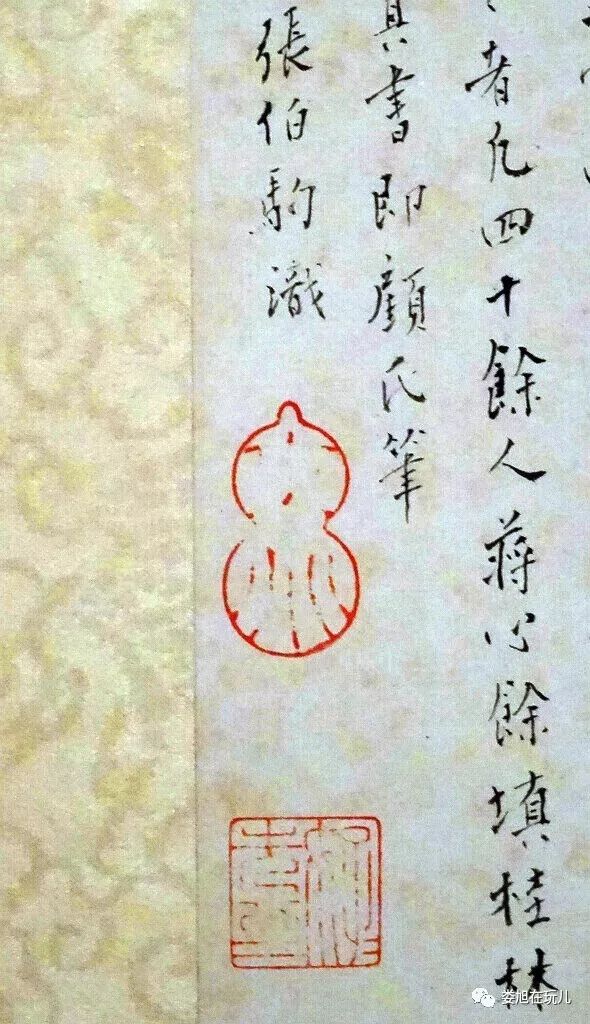 者凡四十餘人蔣心餘填桂林
書即顧氏筆
張伯駒識
娄旭在玩儿